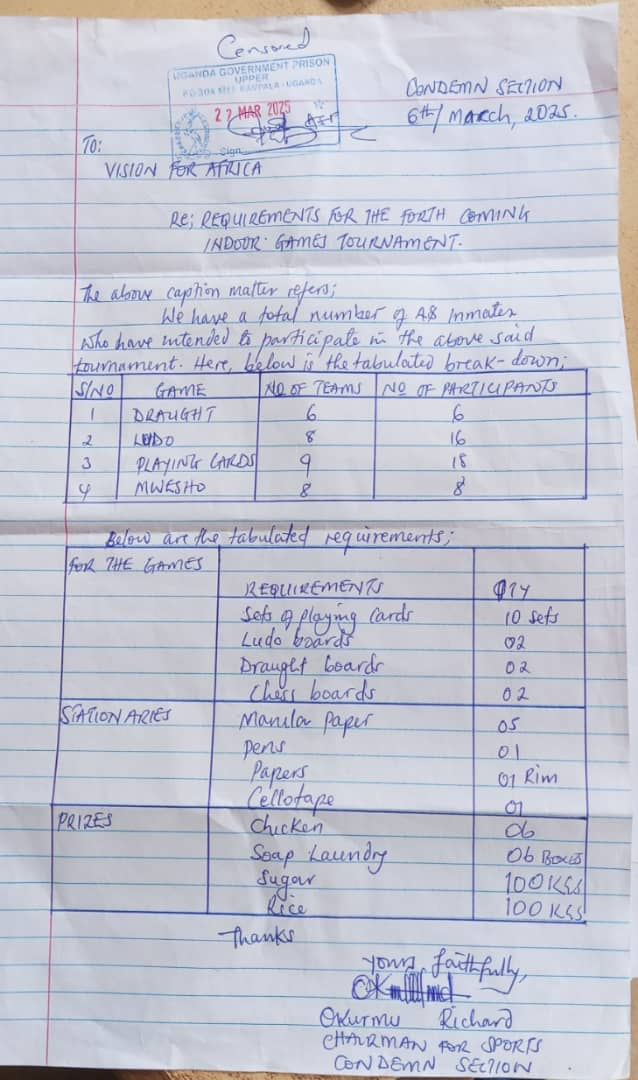 Censored
UGANDA GOVERNMENT PRISON
UPPER
KAMPALA - UGANDA
27 MAR 2025
Sign
CONDEMN SECTION
6th/ March, 2025.
TO:
VISION FOR AFRICA
Re; REQUIREMENTS FOR THE FORTH COMING
INDOOR GAMES TOURNAMENT.
The above caption matter refers;
We have a total number of 48 Inmates
who have intended to participate in the above said
tournament. Here, below is the tabulated break-down;
S/NO GAME NO OF TEAMS NO OF PARTICIPANTS
1 DRAUGHT 6 6
2 LUDO 8 16
3 PLAYING CARDS 9 18
4 MWESHO 8 8
Below are the tabulated requirements;
FOR THE GAMES
REQUIREMENTS QTY
Sets of playing cards 10 sets
Ludo boards 02
Draught boards 02
Chess boards 02
STATIONARIES Manilar Paper 05
Pens 01
Papers 01 Rim
Cellotape 01
PRIZES Chicken 06
Soap Laundry 06 BOXES
Sugar 100 KGS
Rice 100 KGS
Thanks
Yours faithfully,
Okurmu Richard
CHAIRMAN FOR SPORTS
CONDEMN SECTION